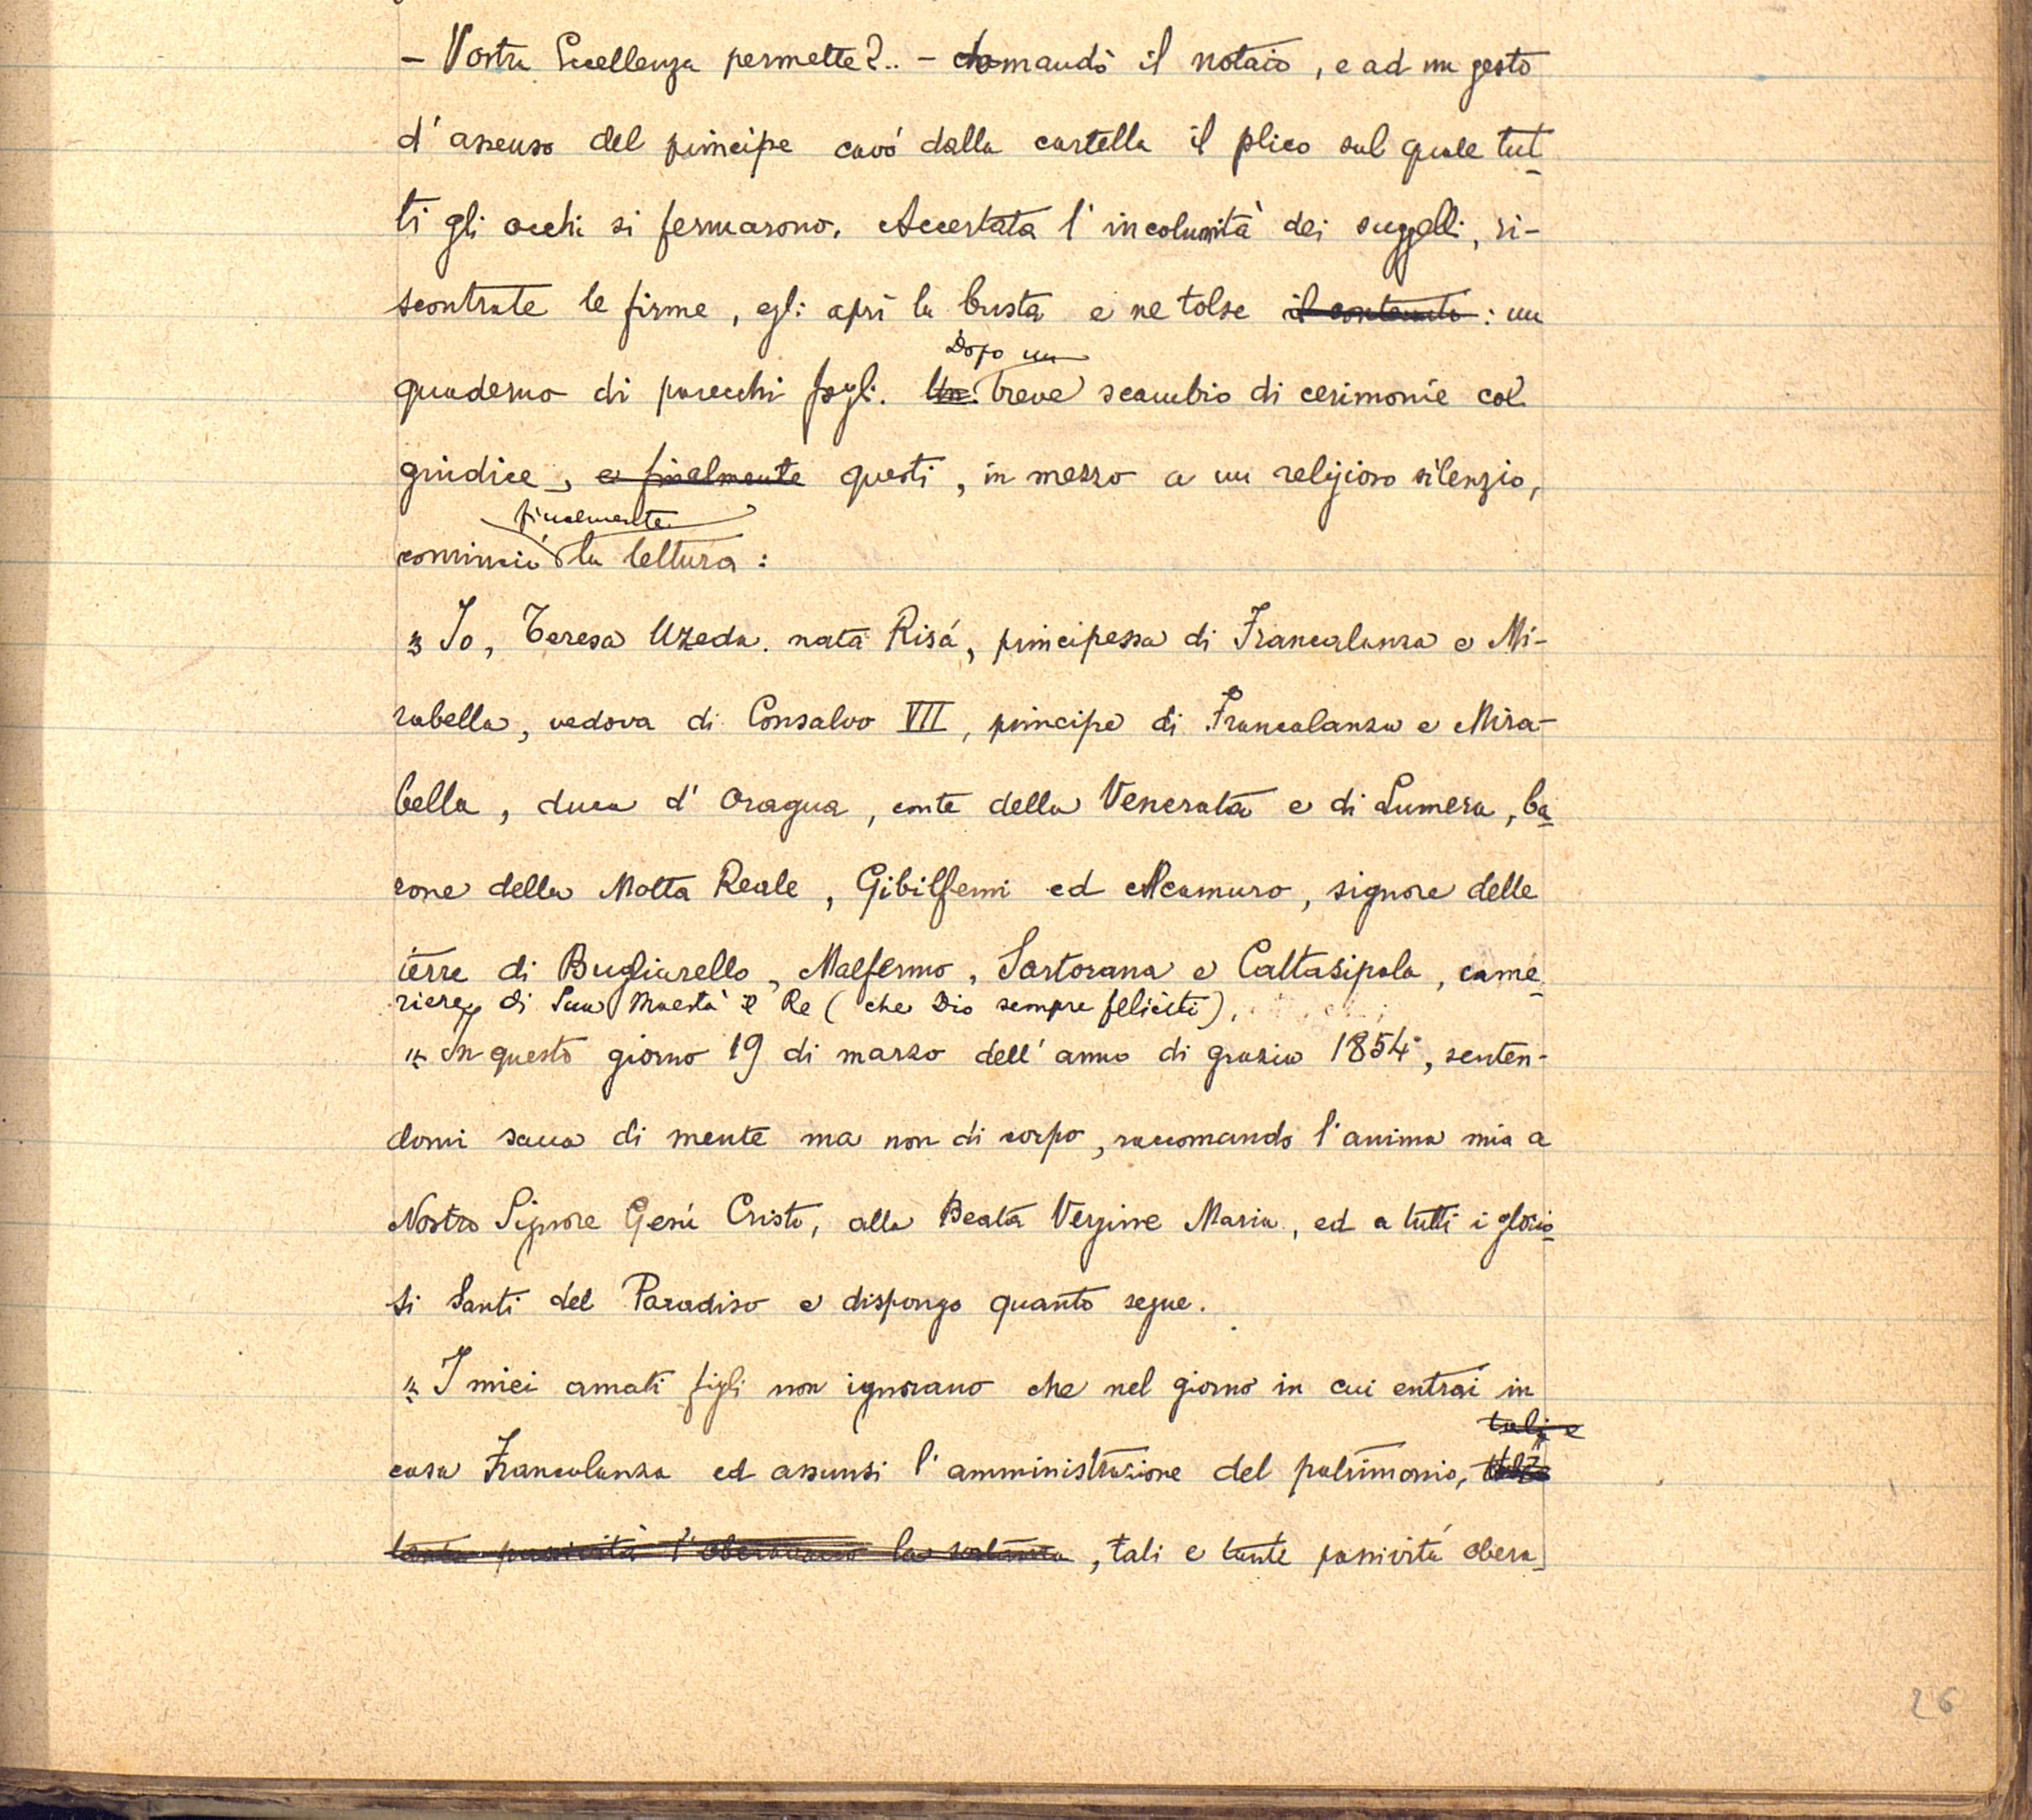 — Vostra Eccellenza permette?.. — domandò il notaio, e ad un gesto
d'assenso del principe cavò dalla cartella il plico sul quale tut-
ti gli occhi si fermarono. Accertata l'incolumità dei suggelli, ri-
scontrate le firme, egli aprì la busta e ne tolse il contenuto: un
Dopo un
quaderno di parecchi fogli. Un breve scambio di cerimonie col
giudice, e finalmente questi, in mezzo a un religioso silenzio,
finalmente
cominciò la lettura:
" Io, Teresa Uzeda nata Risà, principessa di Francalanza e Mi-
rabella, vedova di Consalvo VII, principe di Francalanza e Mira-
bella, duca d'Oragua, conte della Venerata e di Lumera, ba-
rone della Motta Reale, Gibilfemi ed Alcamuro, signore delle
terre di Bugliarello, Malfermo, Sartorana e Caltasipala, came-
riere di Sua Maestà il Re (che Dio sempre feliciti),
" In questo giorno 19 di marzo dell'anno di grazia 1854, senten-
domi sana di mente ma non di corpo, raccomando l'anima mia a
Nostro Signore Gesù Cristo, alla Beata Vergine Maria, ed a tutti i glorio-
si Santi del Paradiso e dispongo quanto segue.
" I miei amati figli non ignorano che nel giorno in cui entrai in
tali e
casa Francalanza ed assunsi l'amministrazione del patrimonio,
tante passività l'oberavano la sostanza, tali e tante passività obera-
26